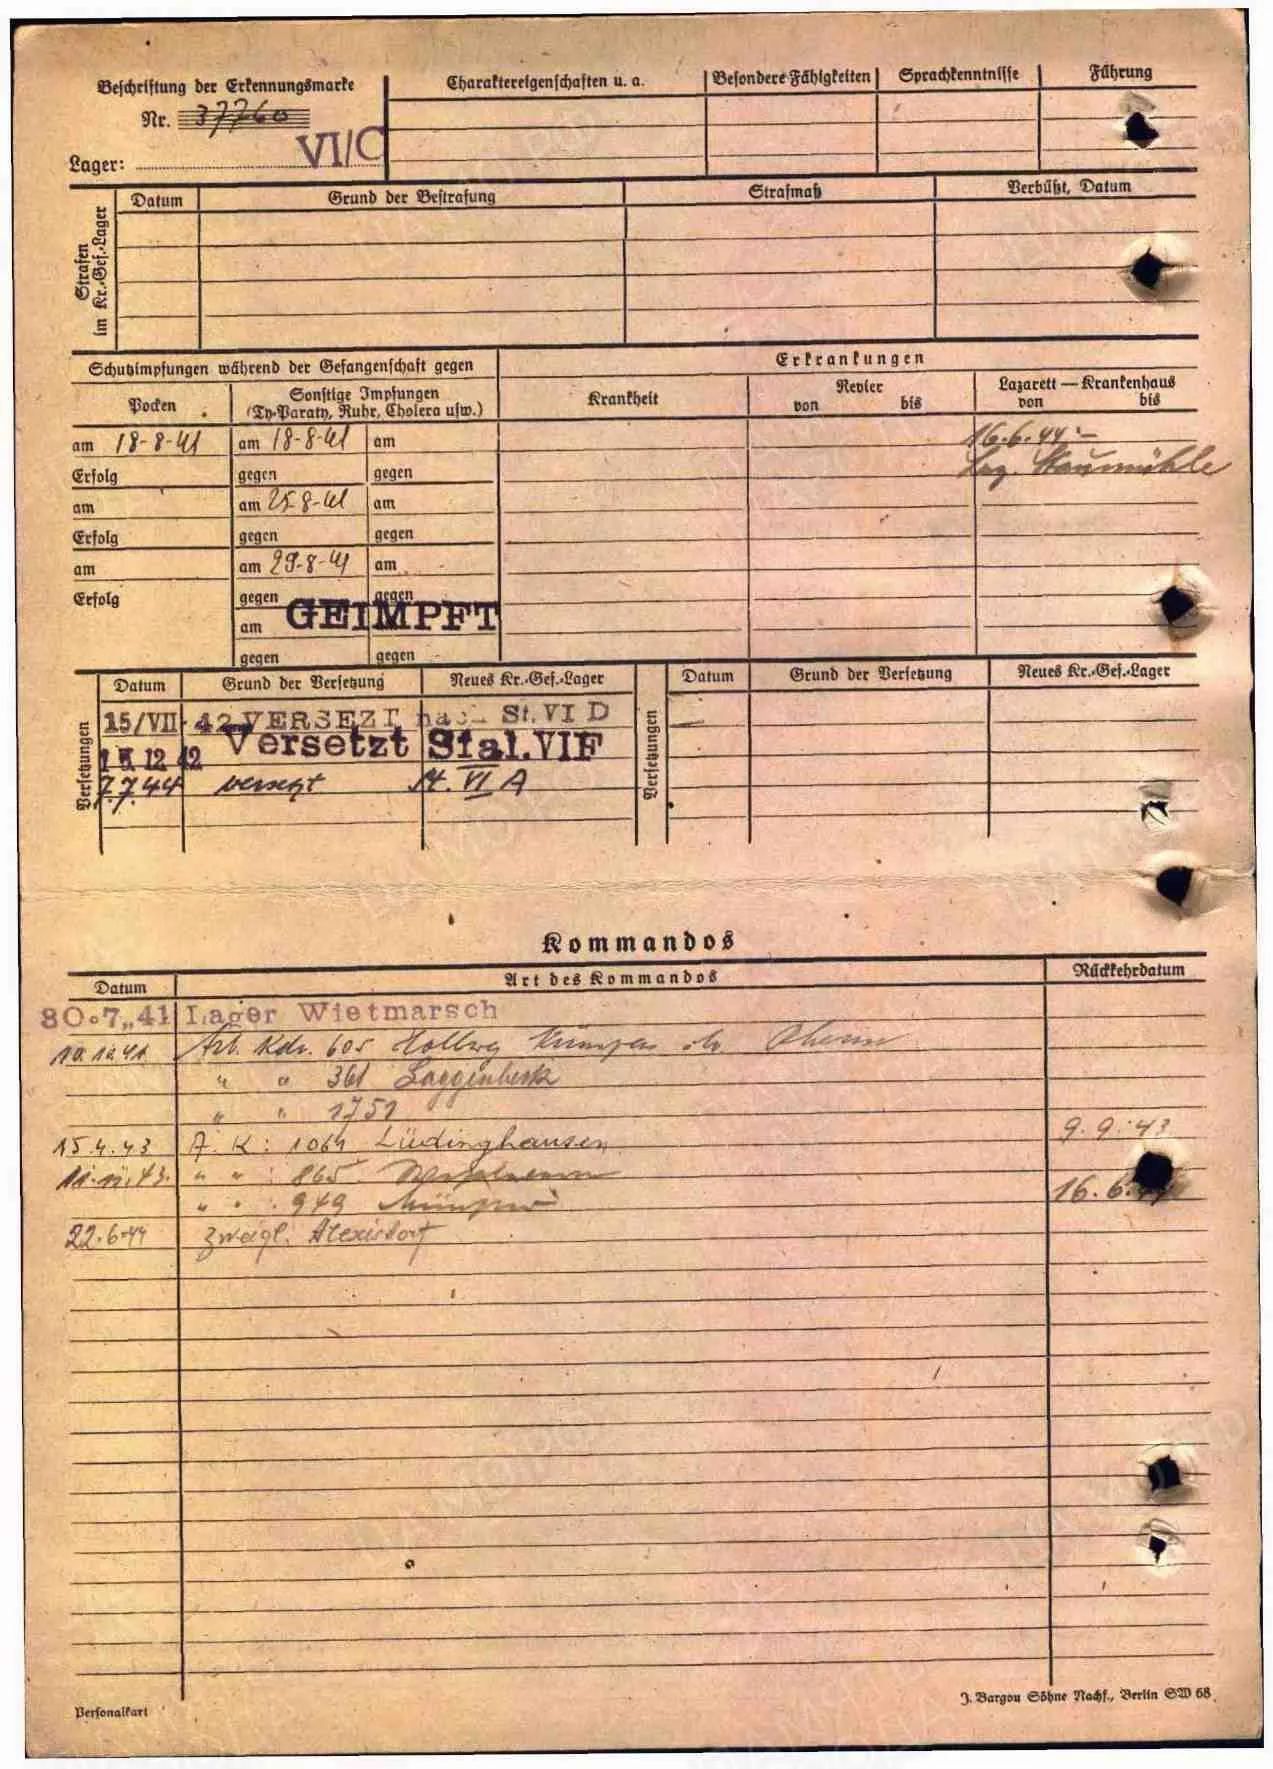 Beschriftung der Erkennungsmarke
Nr. 37760
Lager: VI/C
Charaktereigenschaften u. a.
Besondere Fähigkeiten
Sprachkenntnisse
Führung
Strafen im Kr.-Gef.-Lager
Datum
Grund der Bestrafung
Strafmaß
Verbüßt, Datum
Schutzimpfungen während der Gefangenschaft gegen
Erkrankungen
Pocken
Sonstige Impfungen
(Ty-Paraty, Ruhr, Cholera usw.)
Krankheit
Revier
von bis
Lazarett — Krankenhaus
von bis
am 18-8-41 am 18-8-41 am
16.6.44 :-
Erfolg gegen gegen
Laz. Staumühle
am am 25-8-41 am
Erfolg gegen gegen
am am 29-8-41 am
Erfolg gegen gegen
am GEIMPFT
gegen gegen
Versetzungen
Datum Grund der Versetzung Neues Kr.-Gef.-Lager
15/VII- 42 VERSEZT nach St. VI D
15.12 42 Versetzt Stal. VIF
7.7.44 versetzt St. VI A
Versetzungen
Datum Grund der Versetzung Neues Kr.-Gef.-Lager
Kommandos
Datum Art des Kommandos Rückkehrdatum
30.7„41 Lager Wietmarsch
10.10.41 Arb. Kdo. 605
" " 361 Laggenbeck
" " 1751
15.4.43 A. K : 1064 Lüdinghausen 9.9.43
11.11.43. " " : 865
" " : 949 16.6.44
22.6.44 Zweigl. Alexisdorf
Personalkart
J. Bargou Söhne Nachf., Berlin SW 68